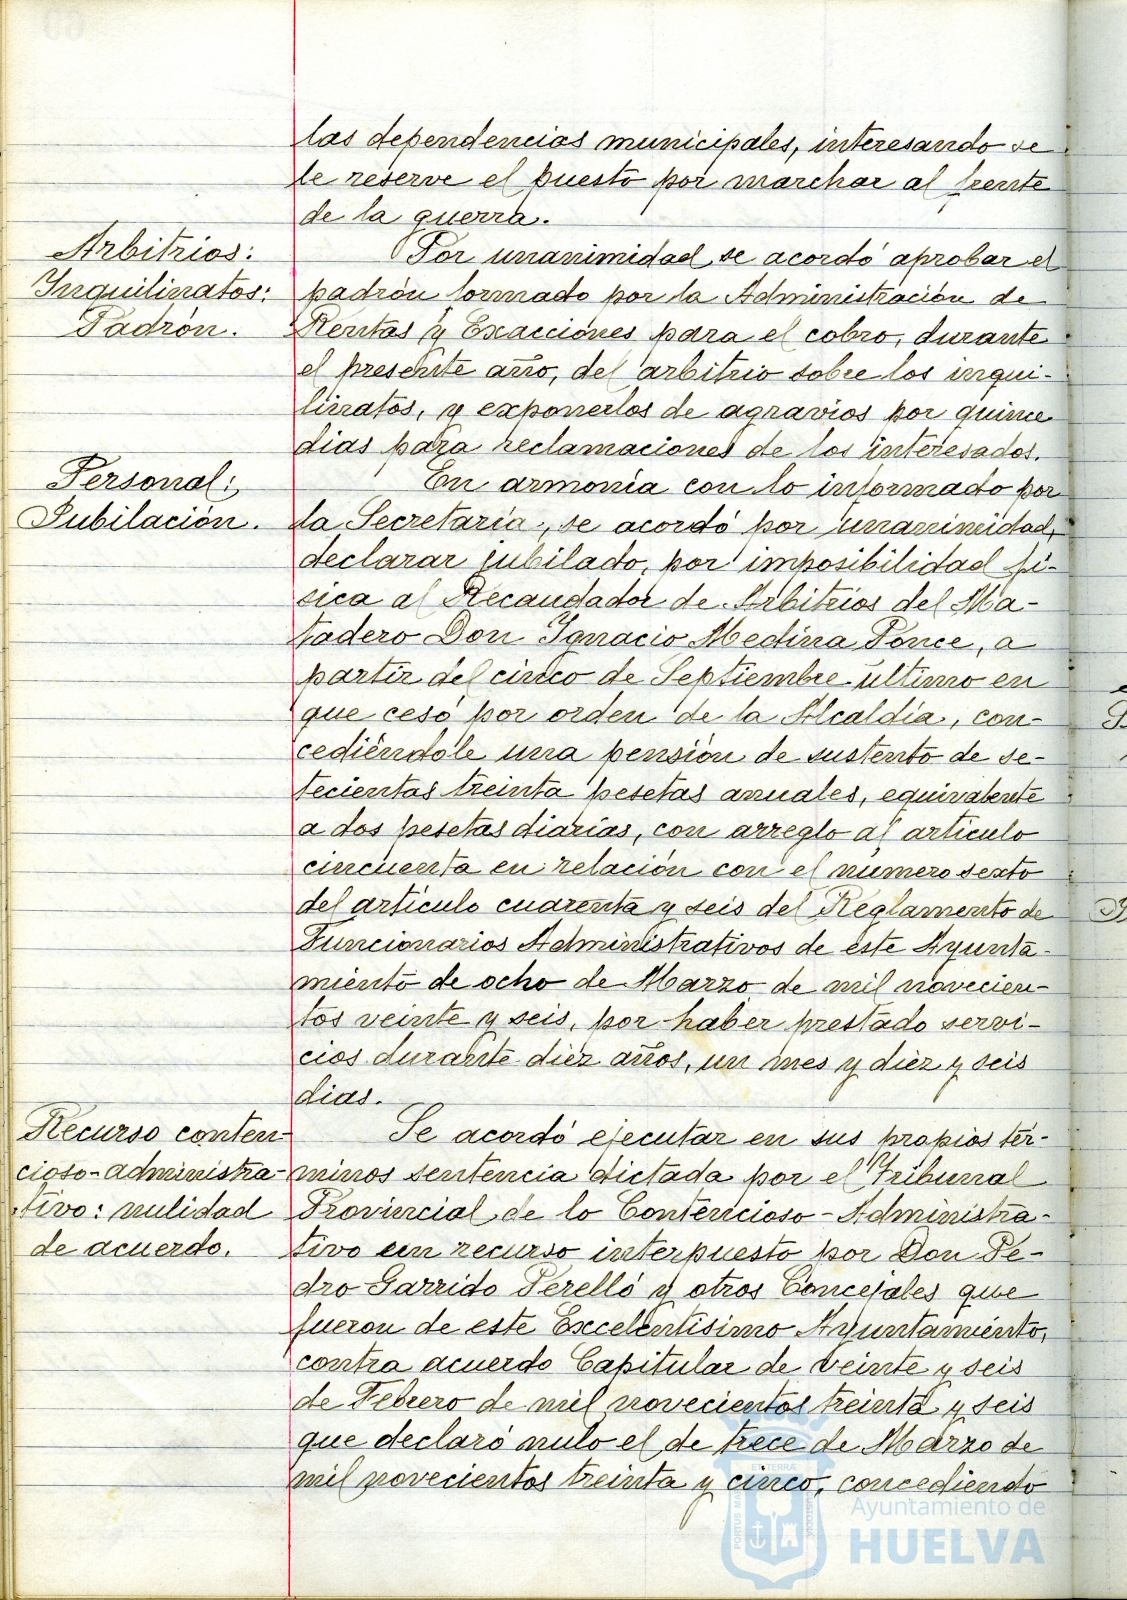 las dependencias municipales, interesando se
le reserve el puesto por marchar al frente
de la guerra.
Arbitrios:
Inquilinatos:
Padrón.
Por unanimidad se acordó aprobar el
padrón formado por la Administración de
Rentas y Exacciónes para el cobro, durante
el presente año, del arbitrio sobre los inqui-
linatos, y exponerlos de agravios por quince
dias para reclamaciones de los interesados.
Personal:
Jubilación.
En armonía con lo informado por
la Secretaría, se acordó por unanimidad,
declarar jubilado, por imposibilidad fí-
sica al Recaudador de Arbitrios del Ma-
tadero Don Ignacio Medina Ponce, a
partir del cinco de Septiembre último en
que cesó por orden de la Alcaldía, con-
cediéndole una pensión de sustento de se-
tecientas treinta pesetas anuales, equivalente
a dos pesetas diarias, con arreglo al artículo
cincuenta en relación con el número sexto
del artículo cuarenta y seis del Reglamento de
Funcionarios Administrativos de este Ayunta-
miento de ocho de Marzo de mil novecien-
tos veinte y seis, por haber prestado servi-
cios durante diez años, un mes y diez y seis
dias.
Recurso conten-
cioso-administra-
tivo: nulidad
de acuerdo.
Se acordó ejecutar en sus propios tér-
minos sentencia dictada por el Tribunal
Provincial de lo Contencioso-Administra-
tivo en recurso interpuesto por Don Pe-
dro Garrido Perelló y otros Concejales que
fueron de este Excelentísimo Ayuntamiento,
contra acuerdo Capitular de veinte y seis
de Febrero de mil novecientos treinta y seis
que declaró nulo el de trece de Marzo de
mil novecientos treinta y cinco, concediendo
Ayuntamiento de
HUELVA